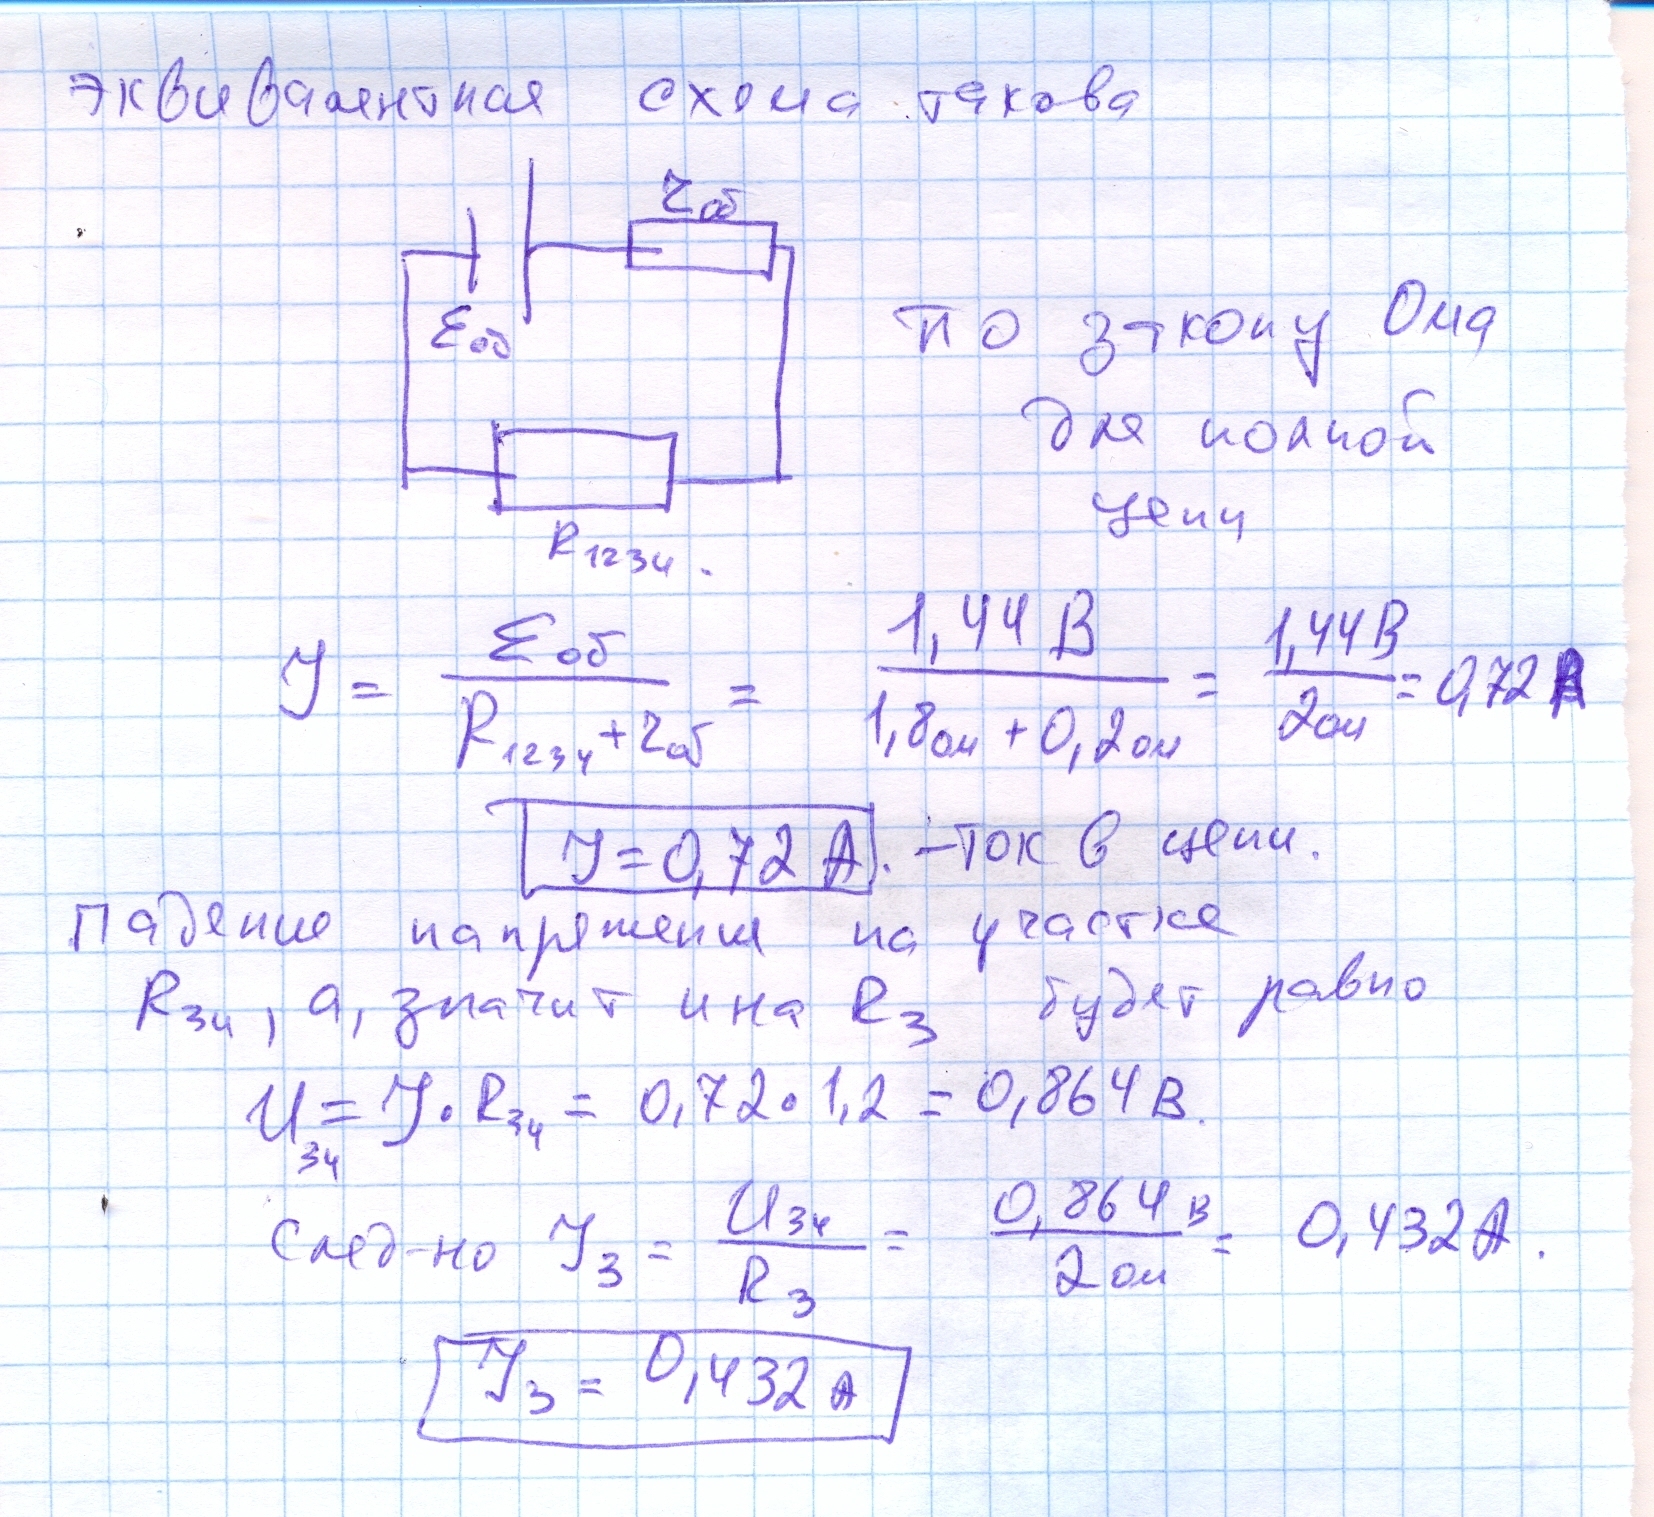 эквивалентная схема такова
rоб
Eоб
R1234.
по закону Ома
для полной
цепи
J = Eоб / (R1234 + rоб) = 1,44 В / (1,8ом + 0,2ом) = 1,44В / 2ом = 0,72 А
J = 0,72 А. – ток в цепи.
Падение напряжения на участке
R34, а, значит и на R3 будет равно
U34 = J · R34 = 0,72 · 1,2 = 0,864 В.
След-но J3 = U34 / R3 = 0,864 В / 2 ом = 0,432 А.
J3 = 0,432 А